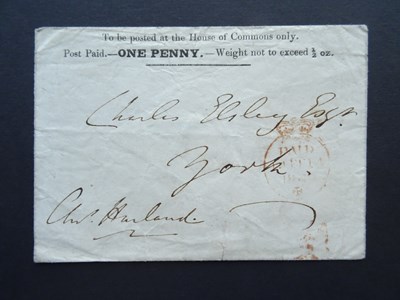 To be posted at the House of Commons only.
Post Paid.—ONE PENNY.—Weight not to exceed ½ oz.
Charles Elsley Esqr
York.
PAID
Chs. Harland